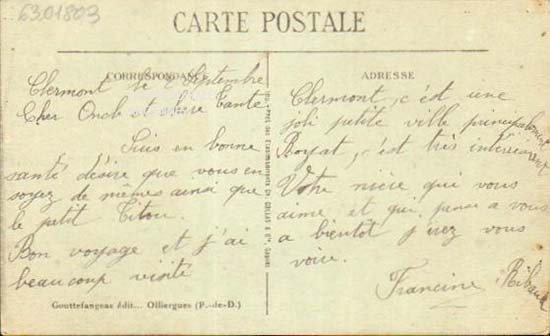 6301803
CARTE POSTALE
CORRESPONDANCE
Clermont le 2 Septembre
Cher Oncle et chère Tante
Suis en bonne
santé désire que vous en
soyez de mêmes ainsi que
le petit Titou.
Bon voyage et j'ai
beaucoup visité
Gouttefangeas édit... Olliergues (P.-de-D.)
ADRESSE
Clermont, c'est une
joli petite ville principalement
Royat, c'est très intéressant
Votre nièce qui vous
aime et qui pense a vous
a bientôt j'irez vous
voire.
Francine